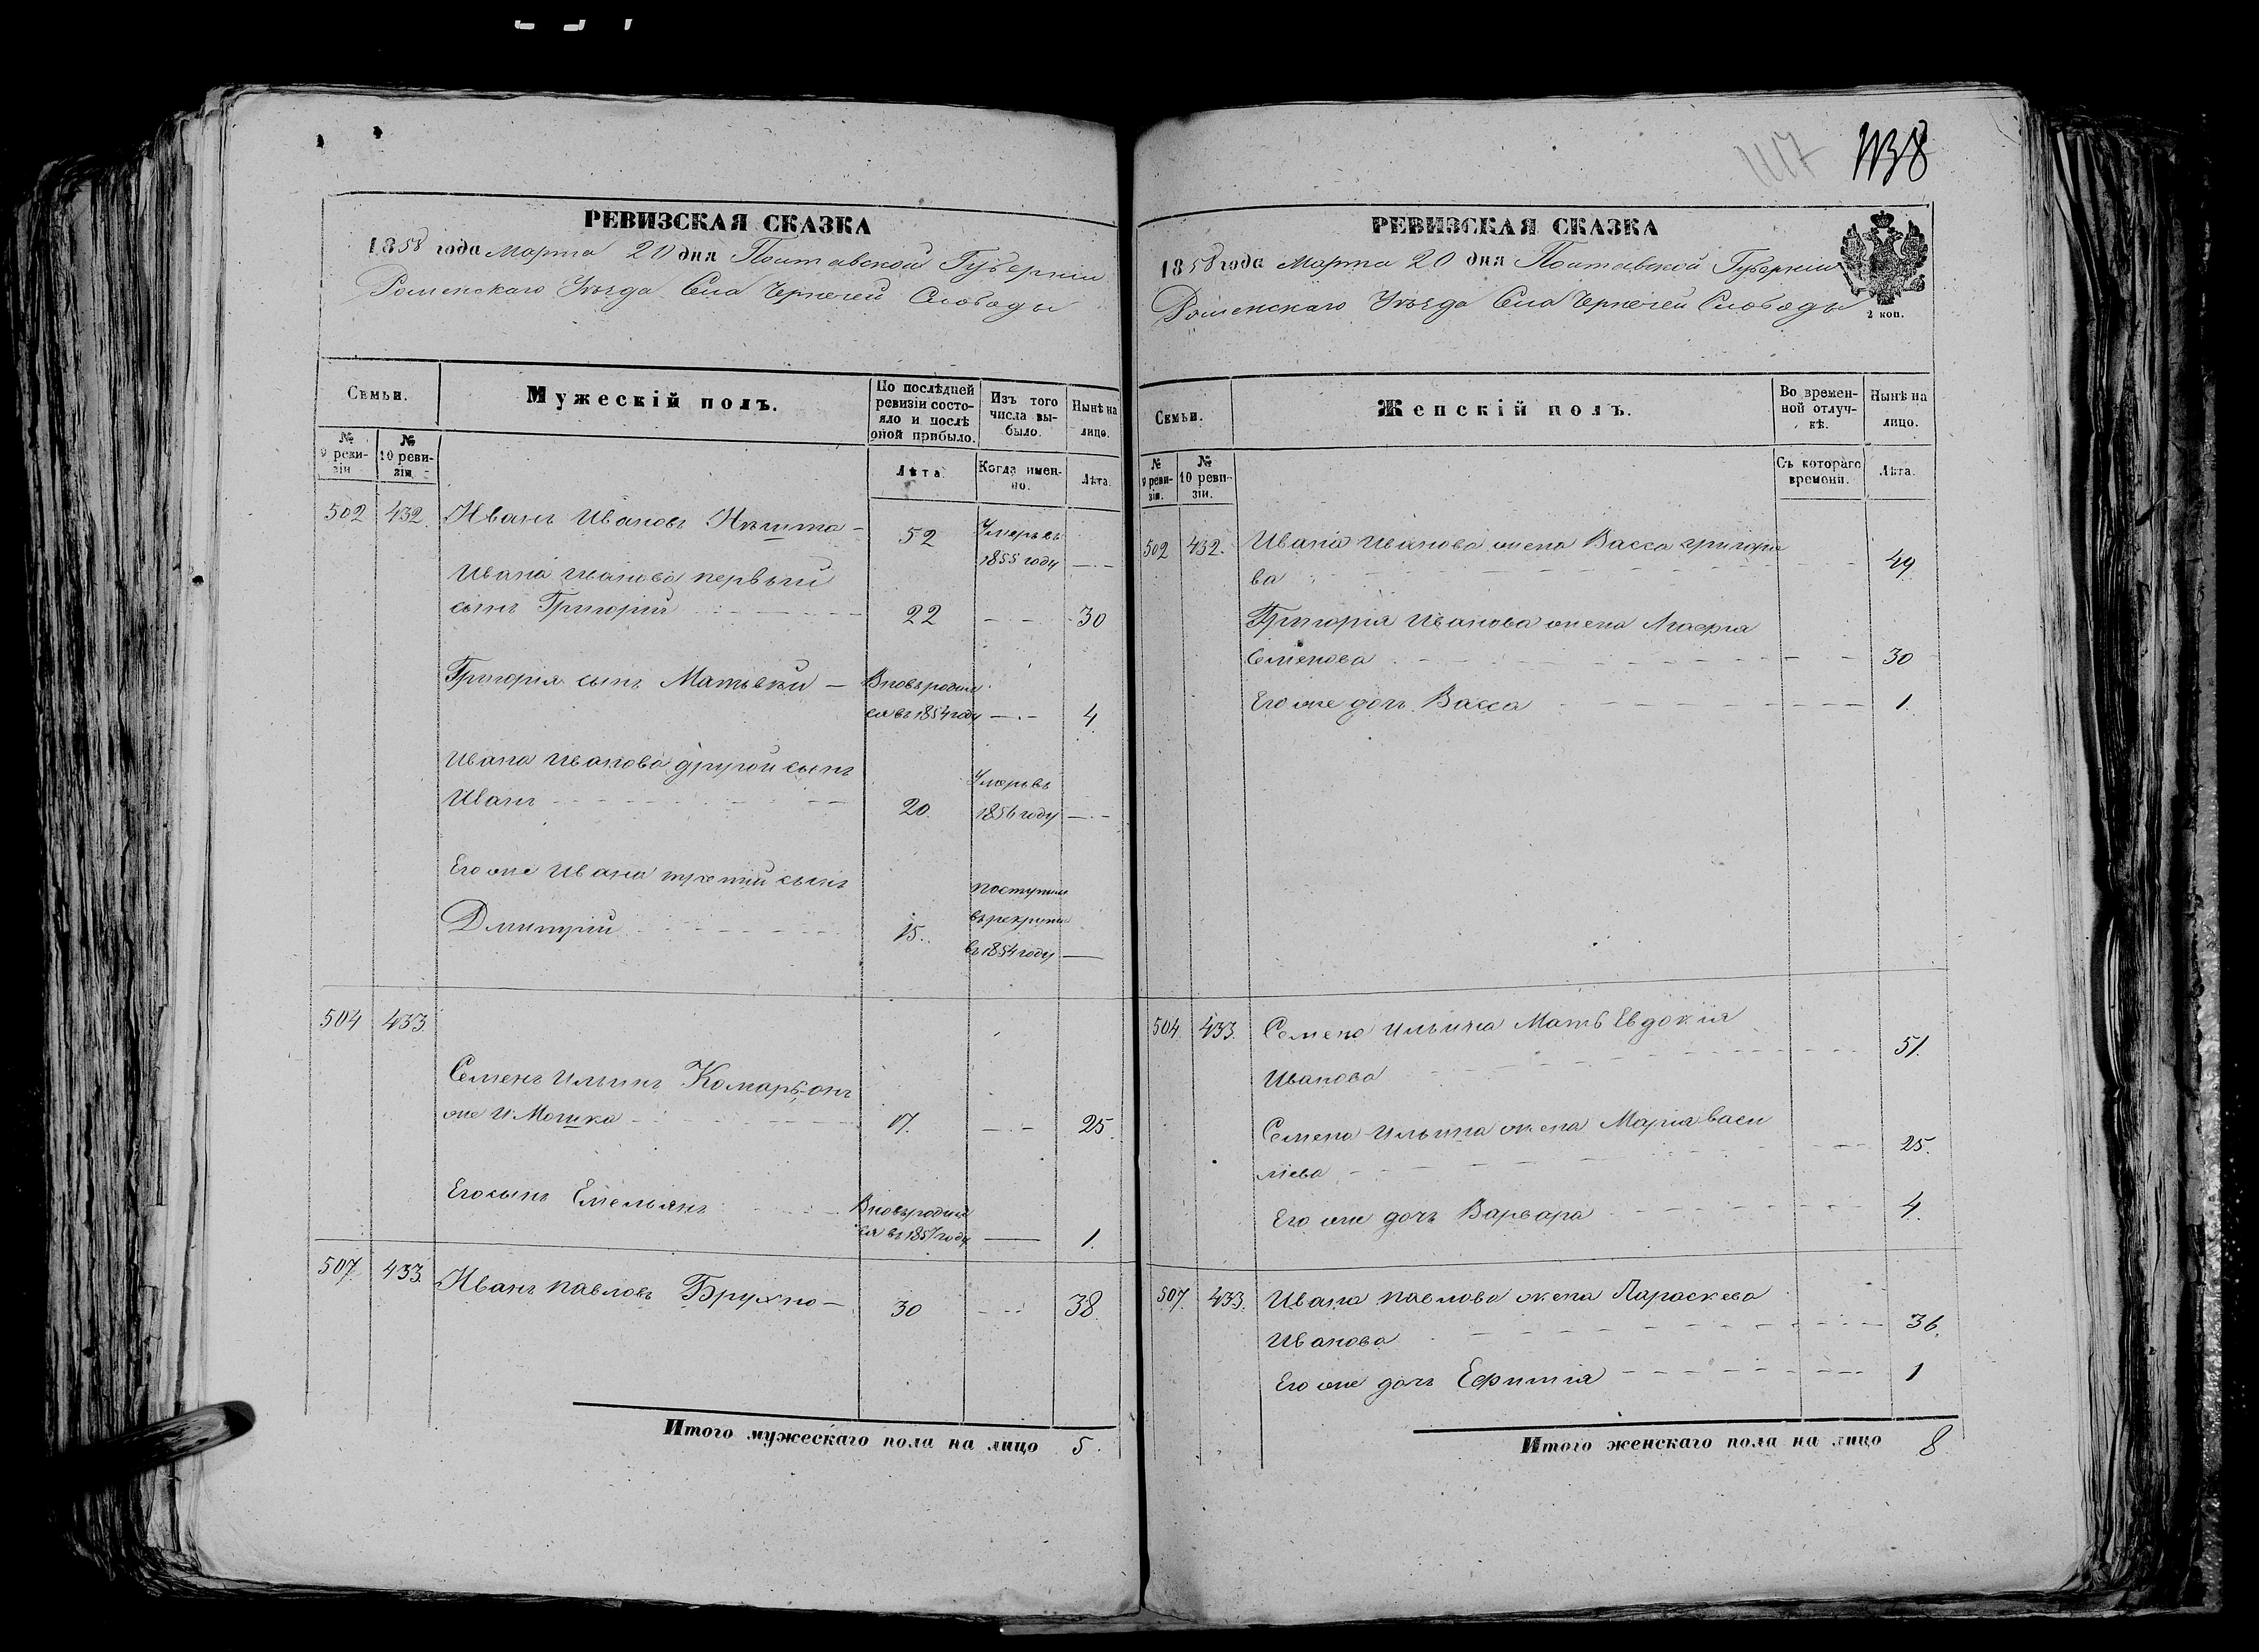 1138
РЕВИЗСКАЯ СКАЗКА
1858 года Марта 20 дня Полтавской Губерніи
Роменскаго Уѣзда Села Чернечей Слободы
Семьи.
Мужескій полъ.
По послѣдней ревизіи состояло и послѣ оной прибыло.
Изъ того числа выбыло.
Нынѣ на лицо.
№ 9 ревизіи
№ 10 ревизіи
Лѣта
Когда именно.
Лѣта.
502 432. Иванъ Ивановъ 52 Умеръ въ
1855 году —
Ивана Иванова первый
сынъ Григорій 22 — 30
Григорія сынъ Матвѣй — Вновь родил
ся въ 1854 году — 4
Ивана Иванова другой сынъ Умеръ въ
Иванъ 20. 1856 году —
Его же Ивана третій сынъ поступил
Дмитрій 15. въ рекруты
въ 1854 году —
504 433.
Семенъ Ильинъ Комаръ, онъ
же и Мошка 17. — 25.
Его сынъ Емельянъ Вновь родил
ся въ 1857 году — 1.
507. 433. Иванъ Павловъ Брухно — 30 — 38.
Итого мужескаго пола на лицо 5.
РЕВИЗСКАЯ СКАЗКА
1858 года Марта 20 дня Полтавской Губерніи
Роменскаго Уѣзда Села Чернечей Слободы
2 коп.
Семьи.
Женскій полъ.
Во временной отлучкѣ.
Нынѣ на лицо.
№ 9 ревизіи.
№ 10 ревизіи.
Съ котораго времени.
Лѣта.
502 432. Ивана Иванова жена Васса Григорье
ва 49
Григорія Иванова жена
Семенова 30
Его же дочь Васса 1.
504. 433. Семена Ильина Мать Евдокія
Иванова 51.
Семена Ильина жена Марія Васи
лієва 25.
Его же дочь Варвара 4.
507. 433. Ивана Павлова жена Параскева
Иванова 36.
Его же дочь Ефимія 1
Итого женскаго пола на лицо 8